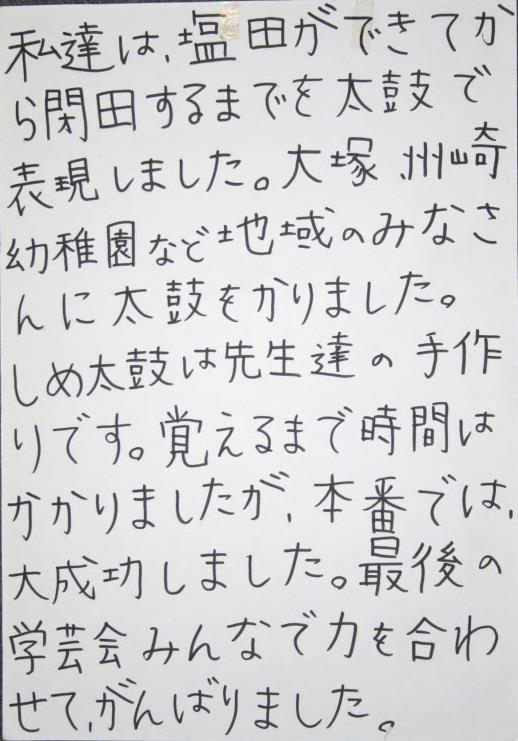 私達は、塩田ができてか
ら閉田するまでを太鼓で
表現しました。大塚、州崎
幼稚園など地域のみなさ
んに太鼓をかりました。
しめ太鼓は先生達の手作
りです。覚えるまで時間は
かかりましたが、本番では、
大成功しました。最後の
学芸会みんなで力を合わ
せて、がんばりました。